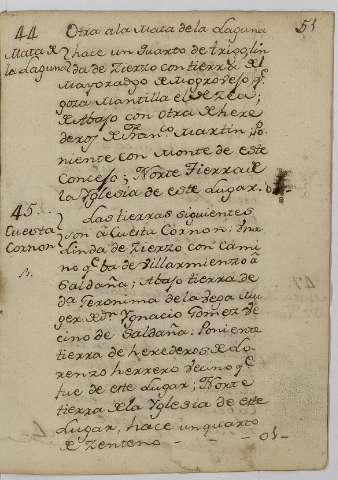 51
44
Mata de
la Laguna
Otra a la Mata de la Laguna
hace un quarto de trigo, lin
da de zierzo con tierra del
Mayorasgo de Mogrovejo qe
goza Mantilla el de Zea;
de Abajo con otra de here
deros de Franco Martin; Po
niente con Monte de este
Concejo; Norte Tierra de
la Yglesia de este Lugar. 01.
45
Cuesta
Cornon
Las tierras siguientes
son â Cuesta Cornon: Una
Linda de Zierzo con Cami
no qe ba de Villarmienzo â
Saldaña; Abajo tierra de
da Geronima de la Vega Mu
ger de dn Ygnacio Gomez Ve
cino de Saldaña: Poniente
tierra de herederos de Lo
renzo herrero vecino qe
fue de este Lugar; Norte
tierra de la Yglesia de este
Lugar, hace un quarto
de Zenteno - - - 01-